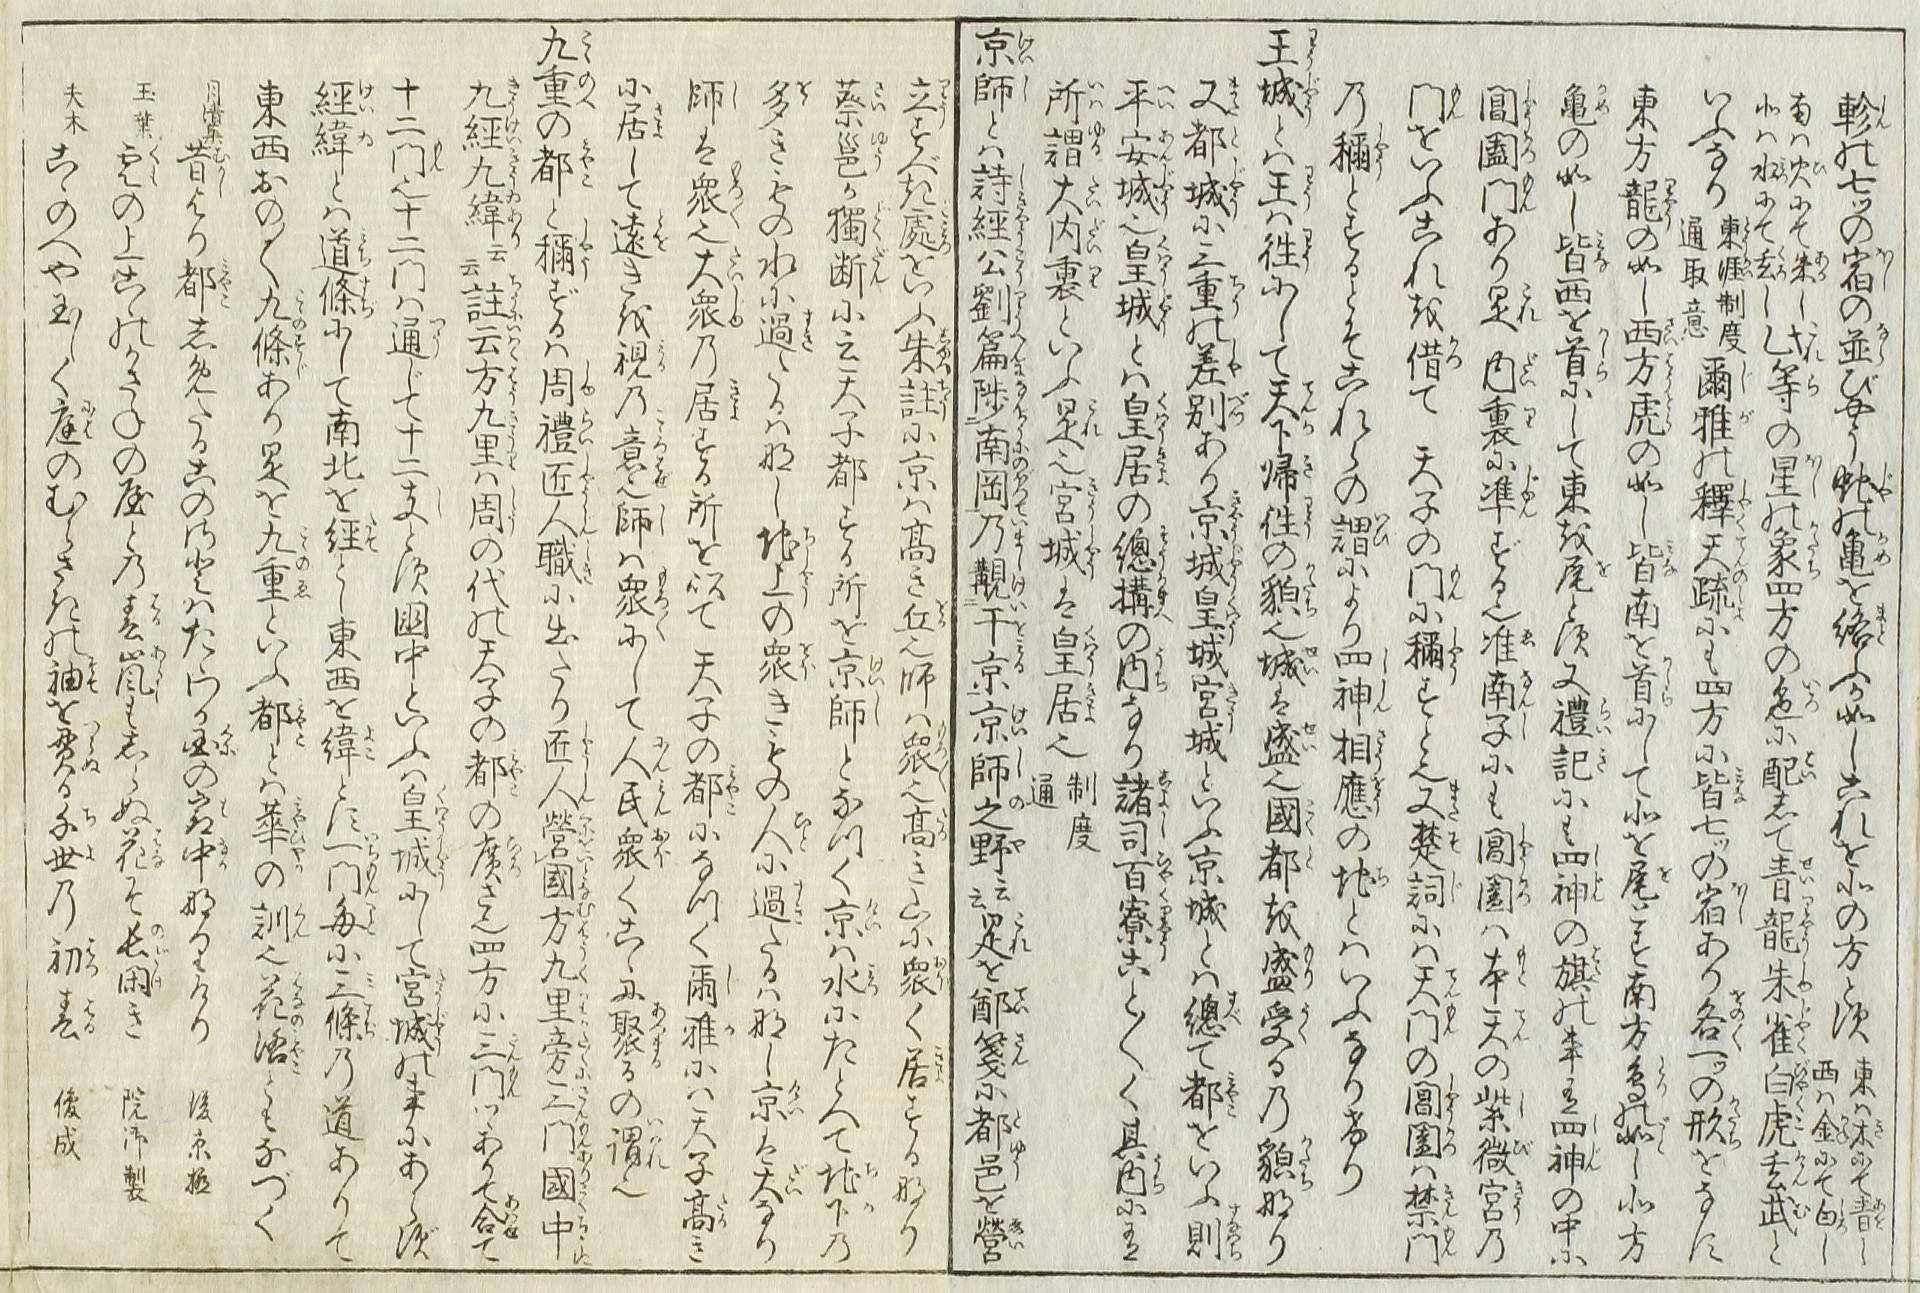 軫の七ツの宿の並びやう蛇の亀を絡ふが如しこれを北の方とす
東ハ木にて青し
西ハ金にて白し
南ハ火にて朱し
北ハ水にて玄し此等の星の象四方の色に配して青龍朱雀白虎玄武と
いふなり
東涯制度
通取意
爾雅の釋天疏にも四方に皆七ツの宿あり各一ツの形をなす
東方龍の如し西方虎の如し皆南を首にして北を尾とす南方鳥の如し北方
亀の如し皆西を首にして東を尾とす又禮記にも四神の旗の事有四神の中に
閶闔門あり是内裏に准ずる也准南子にも閶闔ハ本天の紫微宮乃
門をいふこれを借て 天子の門に稱すと也又楚詞にハ天門の閶闔ハ禁門
乃稱とするとぞこれらの謂により四神相應の地とハいふなりけり
王城とハ王ハ徃にして天下帰徃の貌也城は盛也國都を盛受る乃貌なり
又都城に三重の差別あり京城皇城宮城といふ京城とハ總て都をいふ則
平安城也皇城とハ皇居の總構の内なり諸司百寮こと〲く其内に有
所謂大内裏といふ是也宮城は皇居也
制度
通
京師とハ詩經公劉篇陟南岡乃覯于京京師之野云云是を鄭箋に都邑を營
立すべき處といふ朱註に京ハ高き丘也師ハ衆也高き山に衆く居するなり
蔡邕が獨断に云天子都する所を京師となづく京ハ水にたとへて地下乃
多きもの水に過たるハなし地上の衆きもの人に過たるハなし京は大なり
師は衆也大衆乃居する所を以て 天子の都になづく爾雅にハ天子高き
に居して遠きを視乃意也師ハ衆にして人民衆くこゝに聚るの謂也
九重の都と稱ずるハ周禮匠人職に出たり匠人營國方九里旁三門國中
九經九緯云云註云方九里ハ周の代の天子の都の廣さ也四方に三門づゝありて合て
十二門也十二門ハ通じて十二支とす國中といふハ皇城にして宮城の事にあらず
經緯とハ道條にして南北を經とし東西を緯とす一門毎に三條乃道ありて
東西おの〱九條あり是を九重といふ都とハ華の訓也花洛ともなづく
月清集 昔より都しめたるこの里ハたゞ我國の最中なりけり 後京極
玉葉 雲の上こゝのかさねの春の屋と乃春嵐もしらぬ花ぞ長閑き 院御製
夫木 こゝのへや玉しく庭のむらさきの袖を費る千世乃初春 俊成